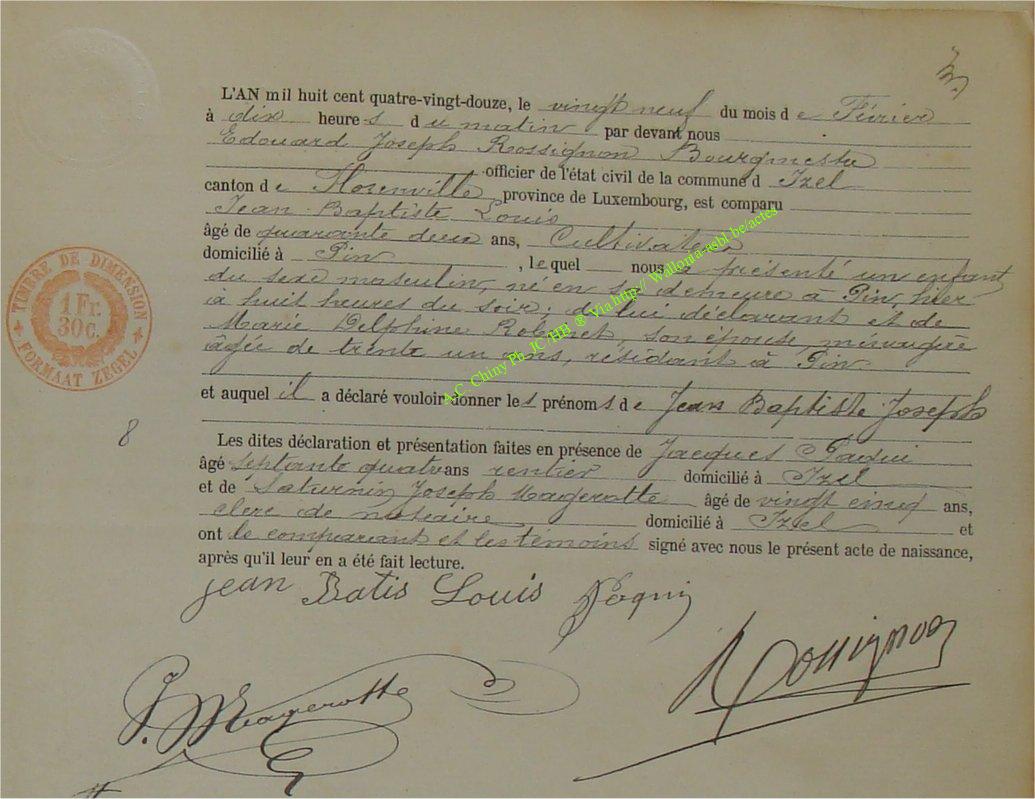 L'AN mil huit cent quatre-vingt-douze, le vingt neuf du mois de Février
à dix heures du matin par devant nous
Edouard Joseph Rossignon Bourgmestre
officier de l'état civil de la commune d Izel
canton de Florenville, province de Luxembourg, est comparu
Jean Baptiste Louis
âgé de quarante deux ans, Cultivateur
domicilié à Pin, lequel nous a présenté un enfant
du sexe masculin, né en sa demeure à Pin, hier
à huit heures du soir; de lui déclarant et de
Marie Delphine Robinet, son épouse, ménagère
âgée de trente un ans, résidant à Pin
et auquel il a déclaré vouloir donner les prénoms de Jean Baptiste Joseph
8
Les dites déclaration et présentation faites en présence de Jacques Paquii
âgé septante quatre ans rentier domicilié à Izel
et de Saturnin Joseph Magerotte âgé de vingt cinq ans,
clerc de notaire domicilié à Izel et
ont le comparant et les témoins signé avec nous le présent acte de naissance,
après qu'il leur en a été fait lecture.
jean Batis Louis
Rossignon
Magerotte
TIMBRE DE DIMENSION
1 Fr.
30c.
FORMAAT ZEGEL
A.C Chiny Ph. JC/HB ® Via http://Wallonia-asbl.be/actes